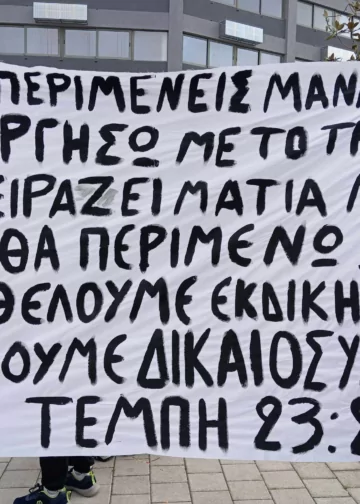 ΠΕΡΙΜΕΝΕΙΣ ΜΑΝ
ΡΓΗΣΩ ΜΕ ΤΟ ΤΡ
ΕΙΡΑΖΕΙ ΜΑΤΙΑ
ΘΑ ΠΕΡΙΜΕΝΩ
ΘΕΛΟΥΜΕ ΕΚΔΙΚΗ
ΟΥΜΕ ΔΙΚΑΙΟΣΥ
ΤΕΜΠΗ 23: